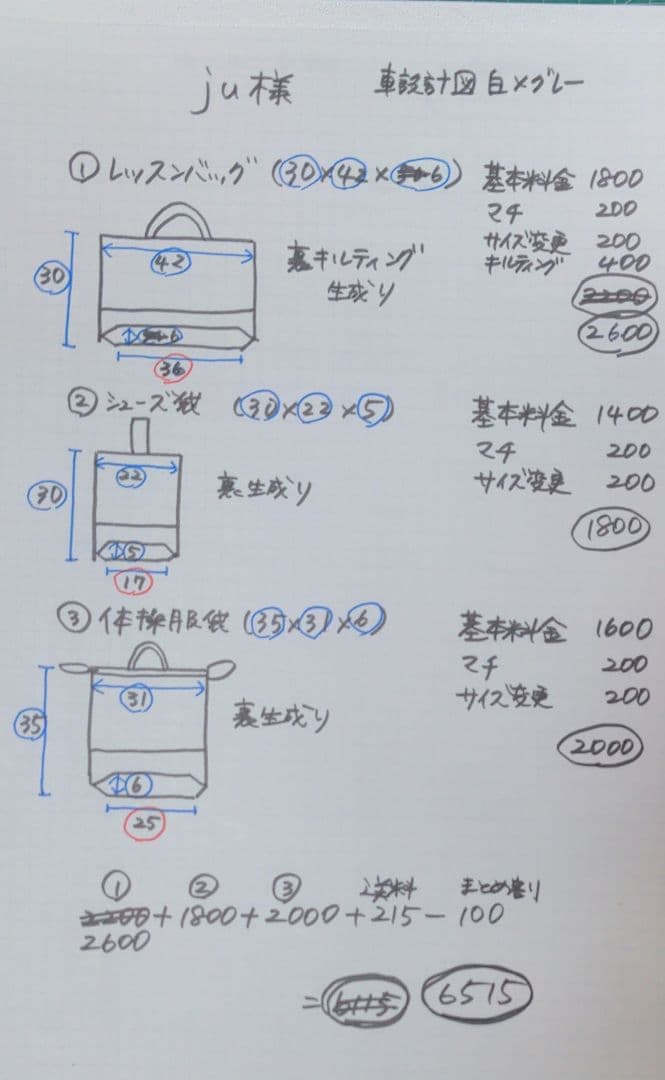 ju様 車設計図 白×グレー
① レッスンバッグ (30×42×6)
基本料金 1800
マチ 200
サイズ変更 200
キルティング 400
2200
2600
30
42
6
36
裏キルティング
生成り
② シューズ袋 (30×22×5)
基本料金 1400
マチ 200
サイズ変更 200
1800
30
22
5
17
裏生成り
③ 体操服袋 (35×31×6)
基本料金 1600
マチ 200
サイズ変更 200
2000
35
31
6
25
裏生成り
① ② ③ 送料 まとめ割り
2200+1800+2000+215-100
2600
= 6115 6515